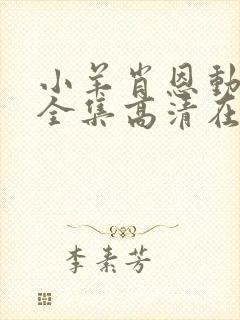 小羊肖恩動
全集高清在
李素芳